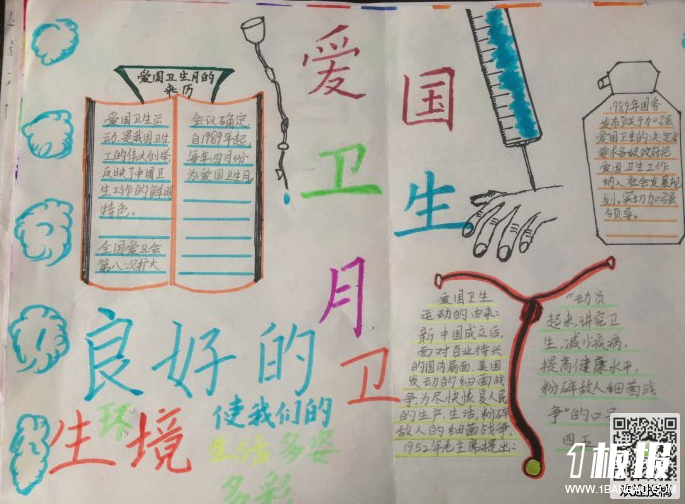 爱国卫生月的
来历
爱国卫生运
动,是我国卫生
工的伟大创举
反映了中国卫
生工作的鲜明
特色。
全国爱卫会
第八次扩大
会议确定
自1989年起,
每年四月份
为爱国卫生月
爱国
卫生
月
1989年国务
发布了关于加强
爱国卫生的决定
要求各级政府把
爱国卫生工作
纳入社会发展规
划,实切加强
领导。
良好的卫
生环境
使我们的
生活多姿
多彩
爱国卫生
运动的由来:
新中国成立后,
面对百业待兴
的国内局面,美国
发动的细菌战
争,为尽快恢复人民
的生产,生活,粉碎
敌人的细菌战争,
1952年毛主席提出:
"动员
起来,讲究卫
生,减少疾病,
提高健康水平,
粉碎敌人细菌战
争"的口
四五
1板报
WWW.1BANBAO.COM